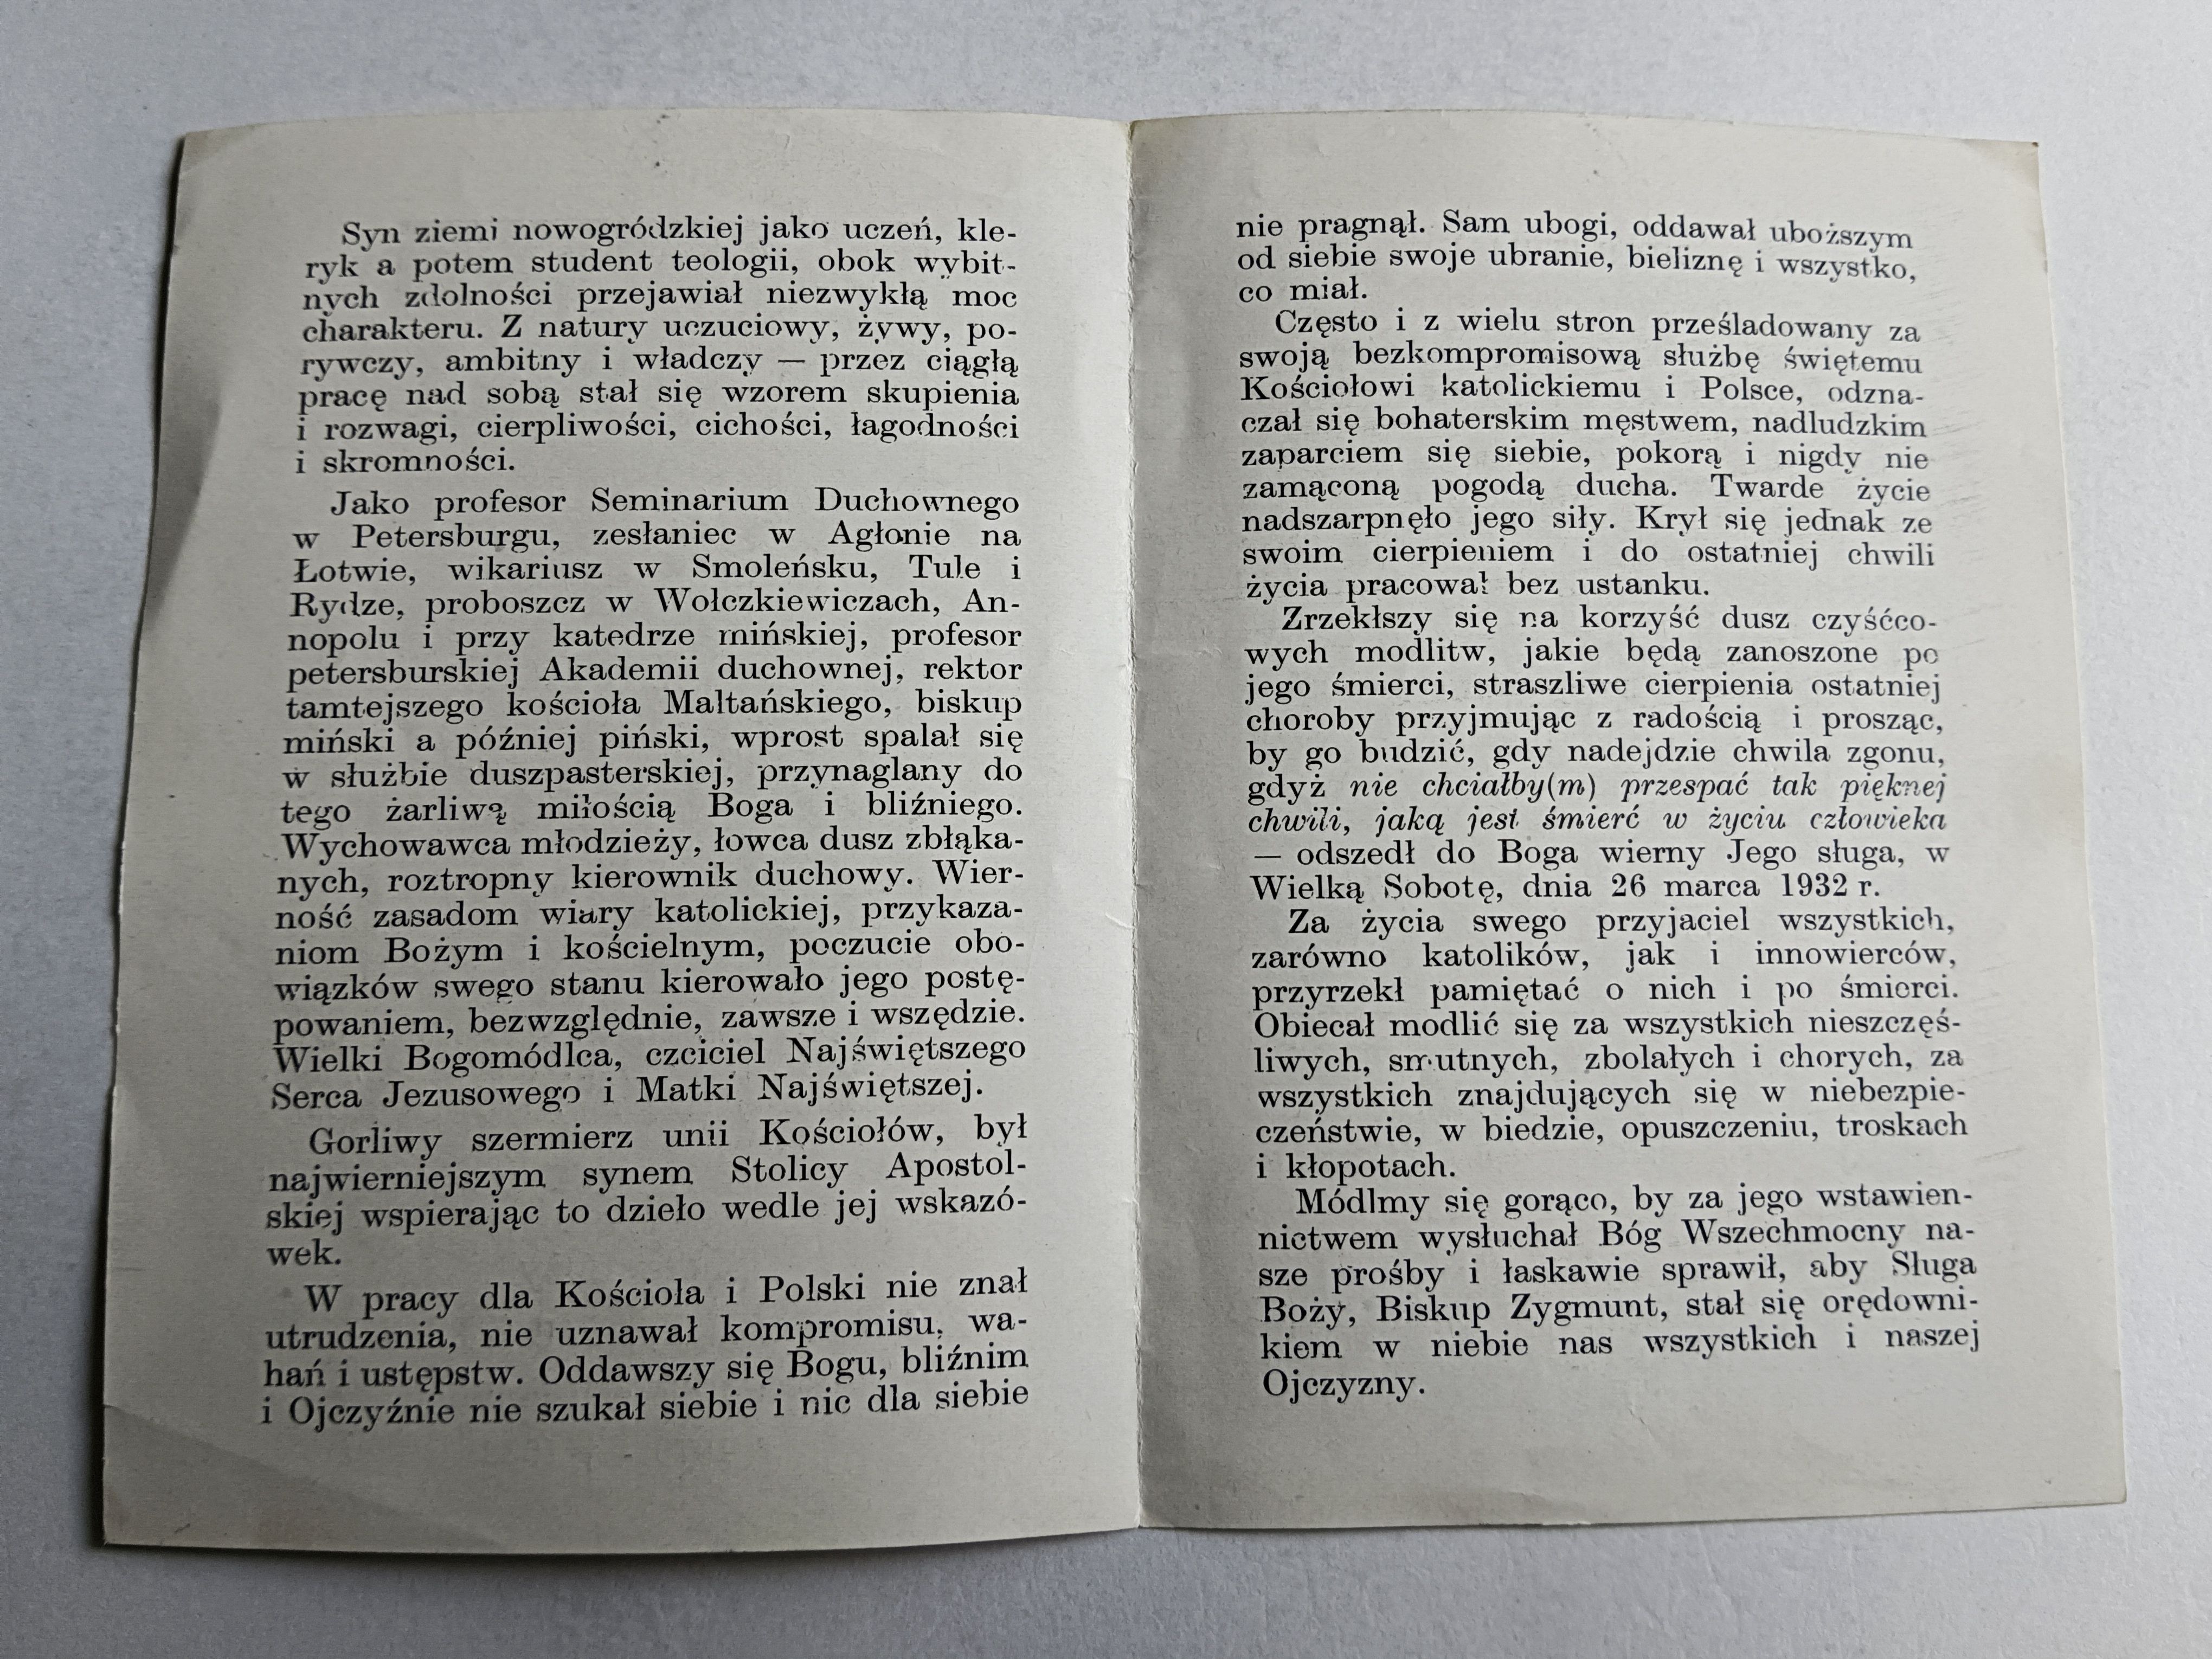 Syn ziemi nowogródzkiej jako uczeń, kle-
ryk a potem student teologii, obok wybit-
nych zdolności przejawiał niezwykłą moc
charakteru. Z natury uczuciowy, żywy, po-
rywczy, ambitny i władczy — przez ciągłą
pracę nad sobą stał się wzorem skupienia
i rozwagi, cierpliwości, cichości, łagodności
i skromności.
Jako profesor Seminarium Duchownego
w Petersburgu, zesłaniec w Agłonie na
Łotwie, wikariusz w Smoleńsku, Tule i
Rydze, proboszcz w Wołczkiewiczach, An-
nopolu i przy katedrze mińskiej, profesor
petersburskiej Akademii duchownej, rektor
tamtejszego kościoła Maltańskiego, biskup
miński a później piński, wprost spalał się
w służbie duszpasterskiej, przynaglany do
tego żarliwą miłością Boga i bliźniego.
Wychowawca młodzieży, łowca dusz zbłąka-
nych, roztropny kierownik duchowy. Wier-
ność zasadom wiary katolickiej, przykaza-
niom Bożym i kościelnym, poczucie obo-
wiązków swego stanu kierowało jego postę-
powaniem, bezwzględnie, zawsze i wszędzie.
Wielki Bogomódlca, czciciel Najświętszego
Serca Jezusowego i Matki Najświętszej.
Gorliwy szermierz unii Kościołów, był
najwierniejszym synem Stolicy Apostol-
skiej wspierając to dzieło wedle jej wskazó-
wek.
W pracy dla Kościoła i Polski nie znał
utrudzenia, nie uznawał kompromisu, wa-
hań i ustępstw. Oddawszy się Bogu, bliźnim
i Ojczyźnie nie szukał siebie i nic dla siebie
nie pragnął. Sam ubogi, oddawał uboższym
od siebie swoje ubranie, bieliznę i wszystko,
co miał.
Często i z wielu stron prześladowany za
swoją bezkompromisową służbę świętemu
Kościołowi katolickiemu i Polsce, odzna-
czał się bohaterskim męstwem, nadludzkim
zaparciem się siebie, pokorą i nigdy nie
zamąconą pogodą ducha. Twarde życie
nadszarpnęło jego siły. Krył się jednak ze
swoim cierpieniem i do ostatniej chwili
życia pracował bez ustanku.
Zrzekłszy się na korzyść dusz czyśćco-
wych modlitw, jakie będą zanoszone po
jego śmierci, straszliwe cierpienia ostatniej
choroby przyjmując z radością i prosząc,
by go budzić, gdy nadejdzie chwila zgonu,
gdyż nie chciałby(m) przespać tak pięknej
chwili, jaką jest śmierć w życiu człowieka
— odszedł do Boga wierny Jego sługa, w
Wielką Sobotę, dnia 26 marca 1932 r.
Za życia swego przyjaciel wszystkich,
zarówno katolików, jak i innowierców,
przyrzekł pamiętać o nich i po śmierci.
Obiecał modlić się za wszystkich nieszczęś-
liwych, smutnych, zbolałych i chorych, za
wszystkich znajdujących się w niebezpie-
czeństwie, w biedzie, opuszczeniu, troskach
i kłopotach.
Módlmy się gorąco, by za jego wstawien-
nictwem wysłuchał Bóg Wszechmocny na-
sze prośby i łaskawie sprawił, aby Sługa
Boży, Biskup Zygmunt, stał się orędowni-
kiem w niebie nas wszystkich i naszej
Ojczyzny.